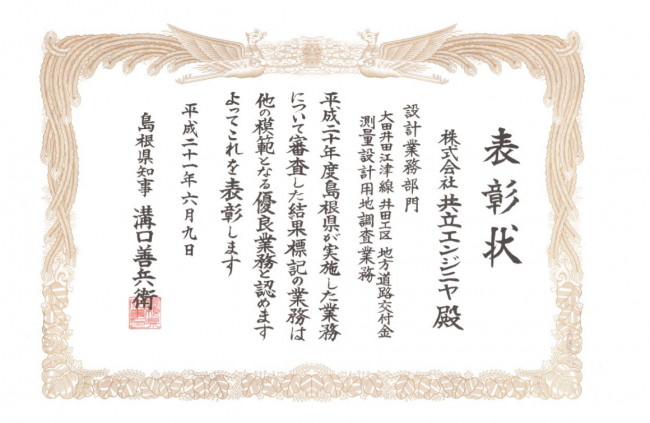 表彰状
株式会社 共立エンジニヤ 殿
設計業務部門
大田井田江津線 井田工区 地方道路交付金
測量設計用地調査業務
平成二十年度島根県が実施した業務
について審査した結果標記の業務は
他の模範となる優良業務と認めます
よってこれを表彰します
平成二十一年六月九日
島根県知事 溝口善兵衛